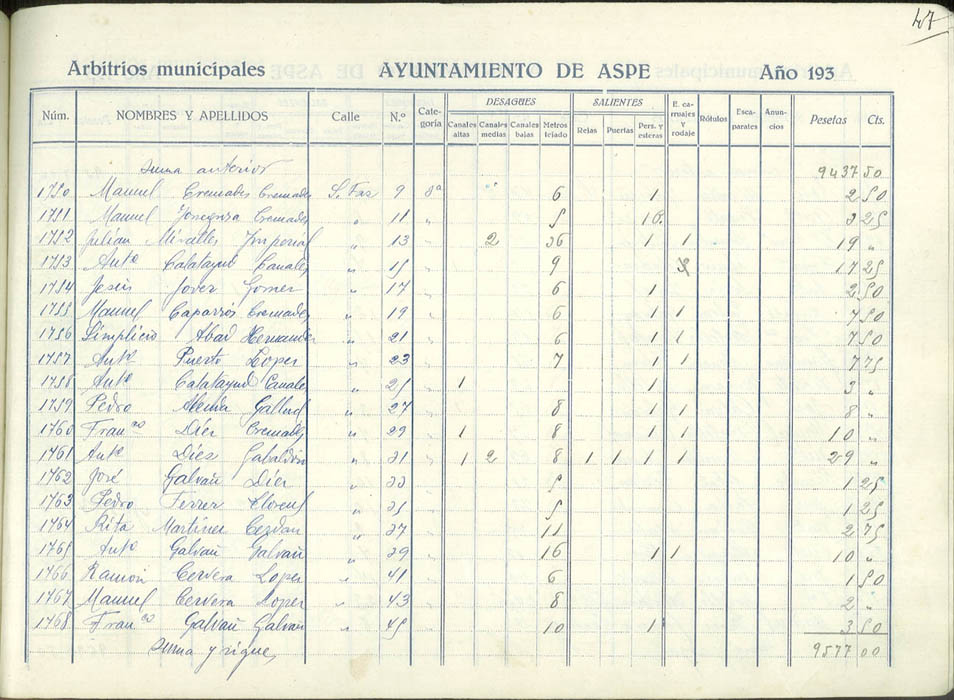 47
Arbitrios municipales AYUNTAMIENTO DE ASPE Año 193
Núm. NOMBRES Y APELLIDOS Calle N.º Cate-goría DESAGUES Canales altas Canales medias Canales bajas Metros tejado SALIENTES Rejas Puertas Pers. y esteras E. ca-rruajes y rodaje Rótulos Esca-parates Anun-cios Pesetas Cts.
Suma anterior 9437 50
1750 Manuel Cremades Cremades S. Faz 9 8ª 6 1 2 50
1751 Manuel Cremades " 11 " 5 1 3 25
1752 Julián Miralles Imperial " 13 " 2 36 1 1 19 "
1753 Antº Calatayud Canales " 15 " 9 17 25
1754 Jesús Jover Gomez " 17 " 6 1 2 50
1755 Manuel Caparrós Cremades " 19 " 6 1 1 7 50
1756 Simplicio Abad Hernandez " 21 " 6 1 1 7 50
1757 Antº Puerto Lopez " 23 " 7 1 1 7 75
1758 Antº Calatayud Canales " 25 " 1 1 3 "
1759 Pedro Alenda " 27 " 8 1 1 8 "
1760 Franco Díez Cremades " 29 " 1 8 1 1 10 "
1761 Antº Díez Gabaldón " 31 " 1 2 8 1 1 1 1 29 "
1762 José Galvañ Díez " 33 " 5 1 25
1763 Pedro Ferrer Llorens " 35 " 5 1 25
1764 Rita Martínez Cerdán " 37 " 11 2 75
1765 Antº Galvañ Galvañ " 39 " 16 1 1 10 "
1766 Ramón Cervera Lopez " 41 " 6 1 50
1767 Manuel Cervera Lopez " 43 " 8 2 "
1768 Franco Galvañ Galvañ " 45 " 10 1 3 50
Suma y sigue 9577 00